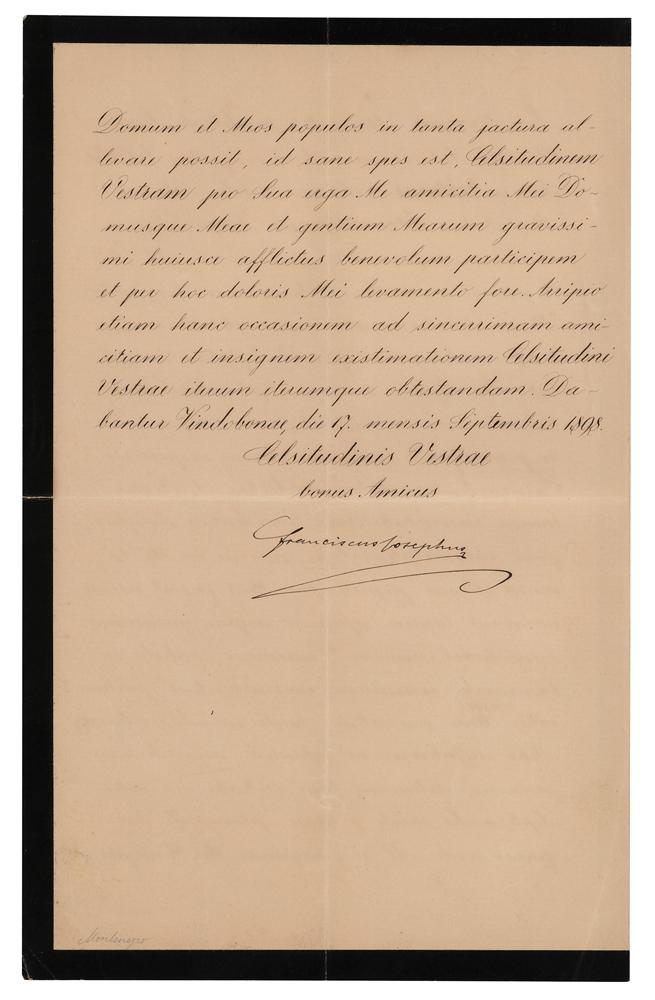 Domum et Meos populos in tanta jactura al-
levare possit, id sane spes est, Celsitudinem
Vestram pro Sua erga Me amicitia Mei Do-
musque Meae et gentium Mearum gravissi-
mi huiusce afflictus benevolum participem
et per hoc doloris Mei levamento fore. Arripio
etiam hanc occasionem ad sincerrimam ami-
citiam et insignem existimationem Celsitudini
Vestrae iterum iterumque obtestandam. Da-
bantur Vindobonae, die 17. mensis Septembris 1898.
Celsitudinis Vestrae
bonus Amicus
Franciscus Josephus
Montenegro